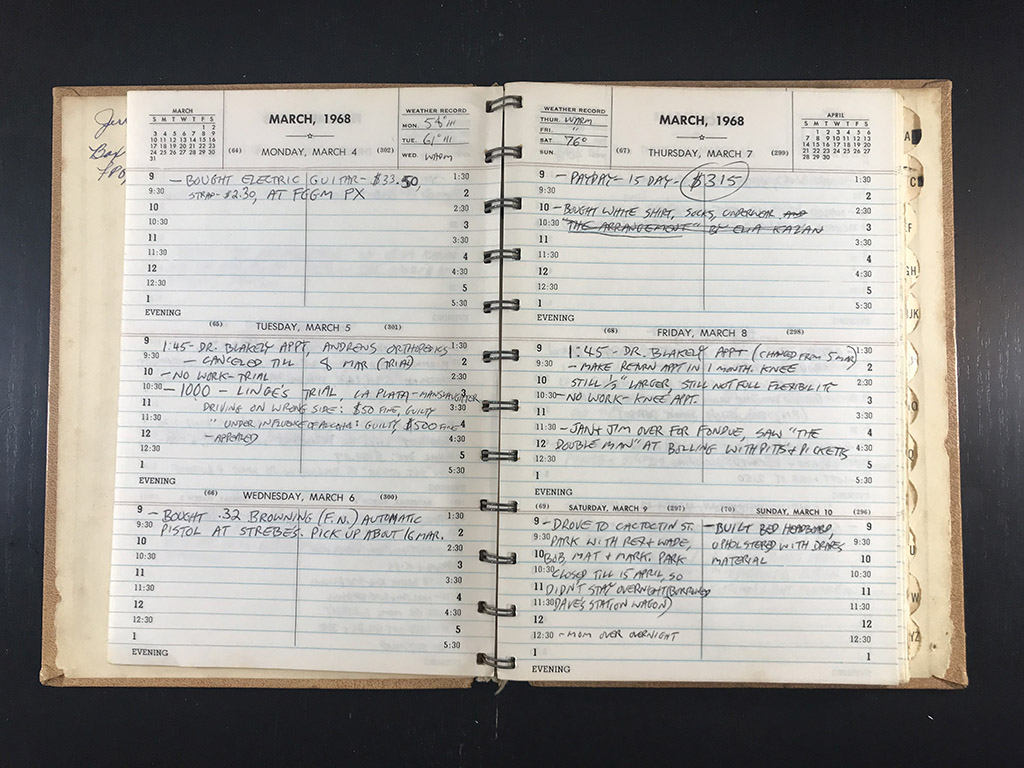 Jerr
Box
PPO
MARCH
S M T W T F S
1 2
3 4 5 6 7 8 9
10 11 12 13 14 15 16
17 18 19 20 21 22 23
24 25 26 27 28 29 30
31
MARCH, 1968
(64) MONDAY, MARCH 4 (302)
WEATHER RECORD
MON. 58° HI
TUE. 61° HI
WED. WARM
9 – BOUGHT ELECTRIC GUITAR – $33.50, 1:30
9:30 STRAP – $2.30, AT FGGM PX 2
10 2:30
10:30 3
11 3:30
11:30 4
12 4:30
12:30 5
1 5:30
EVENING
(65) TUESDAY, MARCH 5 (301)
9 1:45 – DR. BLAKELY APPT, ANDREWS ORTHOPEDICS 1:30
9:30 – CANCELED TILL 8 MAR (TRIAL) 2
10 – NO WORK – TRIAL 2:30
10:30 – 1000 – LINGE'S TRIAL, LA PLATA – MANSLAUGHTER 3
11 DRIVING ON WRONG SIDE: $50 FINE, GUILTY 3:30
11:30 " UNDER INFLUENCE OF ALCOHOL: GUILTY, $500 FINE 4
12 – APPEALED 4:30
12:30 5
1 5:30
EVENING
(66) WEDNESDAY, MARCH 6 (300)
9 – BOUGHT .32 BROWNING (F.N.) AUTOMATIC 1:30
9:30 PISTOL AT STREBES. PICK UP ABOUT 16 MAR. 2
10 2:30
10:30 3
11 3:30
11:30 4
12 4:30
12:30 5
1 5:30
EVENING
WEATHER RECORD
THUR. WARM
FRI. "
SAT. 76°
SUN.
MARCH, 1968
(67) THURSDAY, MARCH 7 (299)
APRIL
S M T W T F S
1 2 3 4 5 6
7 8 9 10 11 12 13
14 15 16 17 18 19 20
21 22 23 24 25 26 27
28 29 30
9 – PAYDAY – 15 DAY – $315 1:30
9:30 2
10 – BOUGHT WHITE SHIRT, SOCKS, UNDERWEAR AND 2:30
10:30 "THE ARRANGEMENT" BY ELIA KAZAN 3
11 3:30
11:30 4
12 4:30
12:30 5
1 5:30
EVENING
(68) FRIDAY, MARCH 8 (298)
9 1:45 – DR. BLAKELY APPT (CHANGED FROM 5 MAR) 1:30
9:30 – MAKE RETURN APT IN 1 MONTH. KNEE 2
10 STILL 1/2" LARGER STILL NOT FULL FLEXIBILITY 2:30
10:30 – NO WORK – KNEE APPT. 3
11 3:30
11:30 – JAN + JIM OVER FOR FONDUE, SAW "THE 4
12 DOUBLE MAN" AT BOLLING WITH PITTS + PICKETTS 4:30
12:30 5
1 5:30
EVENING
(69) SATURDAY, MARCH 9 (297)
9 – DROVE TO CACTOCTIN ST.
9:30 PARK WITH REX + WADE,
10 BOB, MAT + MARK. PARK
10:30 CLOSED TILL 15 APRIL, SO
11 DIDN'T STAY OVERNIGHT (BORROWED
11:30 DAVE'S STATION WAGON)
12
12:30 – MOM OVER OVERNIGHT
EVENING
(70) SUNDAY, MARCH 10 (296)
– BUILT BED HEADBOARD, 9
UPHOLSTERED WITH DRAPES 9:30
MATERIAL 10
10:30
11
11:30
12
12:30
1
A
C
EF
GH
IJK
L
O
U
W
YZ